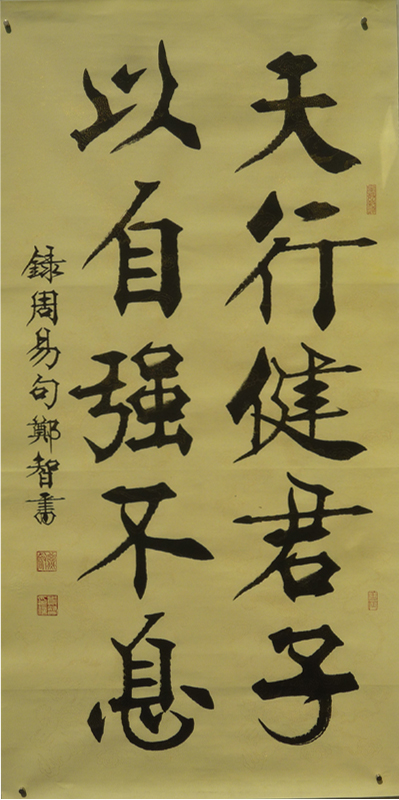 天行健君子
以自强不息
録周易句鄭智書